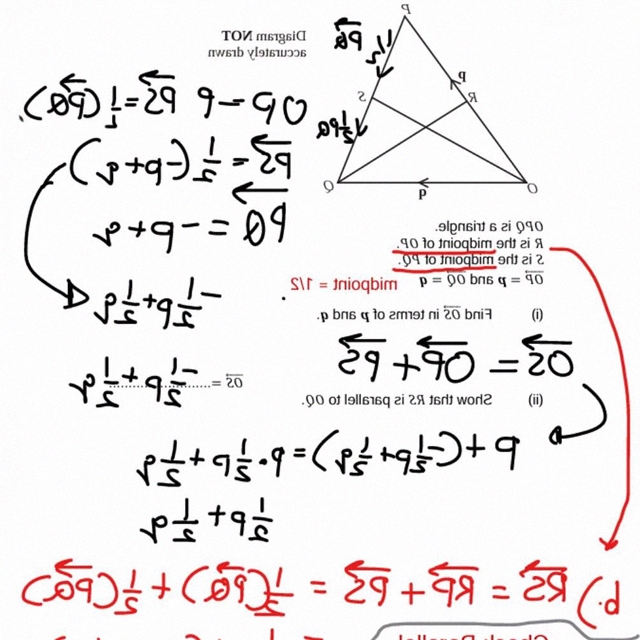 Diagram NOT
accurately drawn
P
PQ ½
S
p
R
½PQ
Q
q
O
PS = ½(PQ)
PS = ½(-p+q)
PQ = -p+q
-½p+½q
OPQ is a triangle.
R is the midpoint of OP.
S is the midpoint of PQ.
OP = p and OQ = q
midpoint = 1/2
(i) Find OS in terms of p and q.
OS = OP + PS
OS = -½p+½q
(ii) Show that RS is parallel to OQ.
p + (-½p+½q) = p-½p+½q
½p+½q
b.) RS = RP + PS = ½(OP) + ½(PQ)